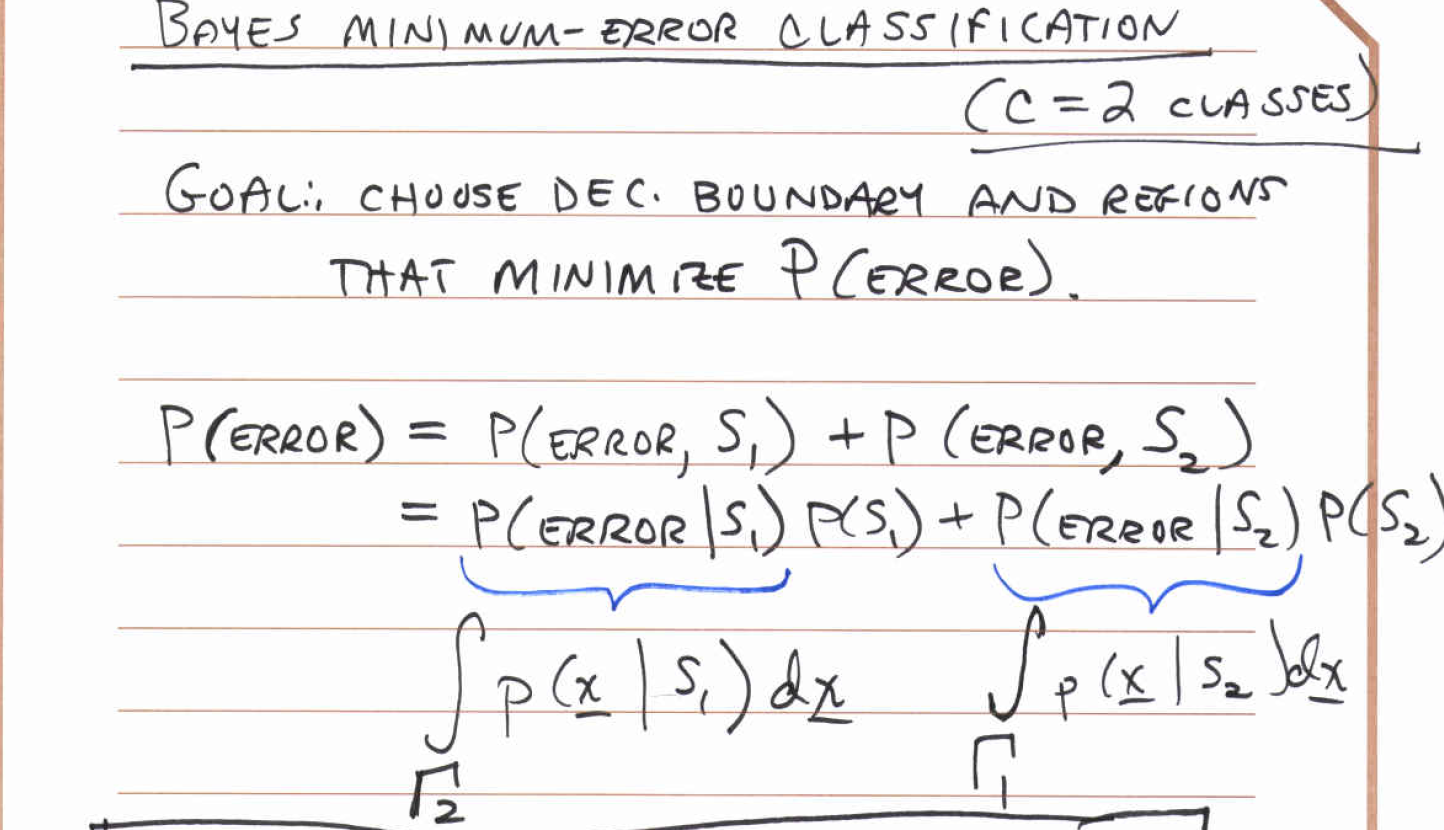 BAYES MINIMUM-ERROR CLASSIFICATION
(C = 2 CLASSES)
GOAL:, CHOOSE DEC. BOUNDARY AND REGIONS
THAT MINIMIZE P(ERROR).
P(ERROR) = P(ERROR, S₁) + P(ERROR, S₂)
= P(ERROR|S₁) P(S₁) + P(ERROR|S₂) P(S₂)
∫_Γ₂ p(x̲|S₁) dx̲ ∫_Γ₁ p(x̲|S₂) dx̲